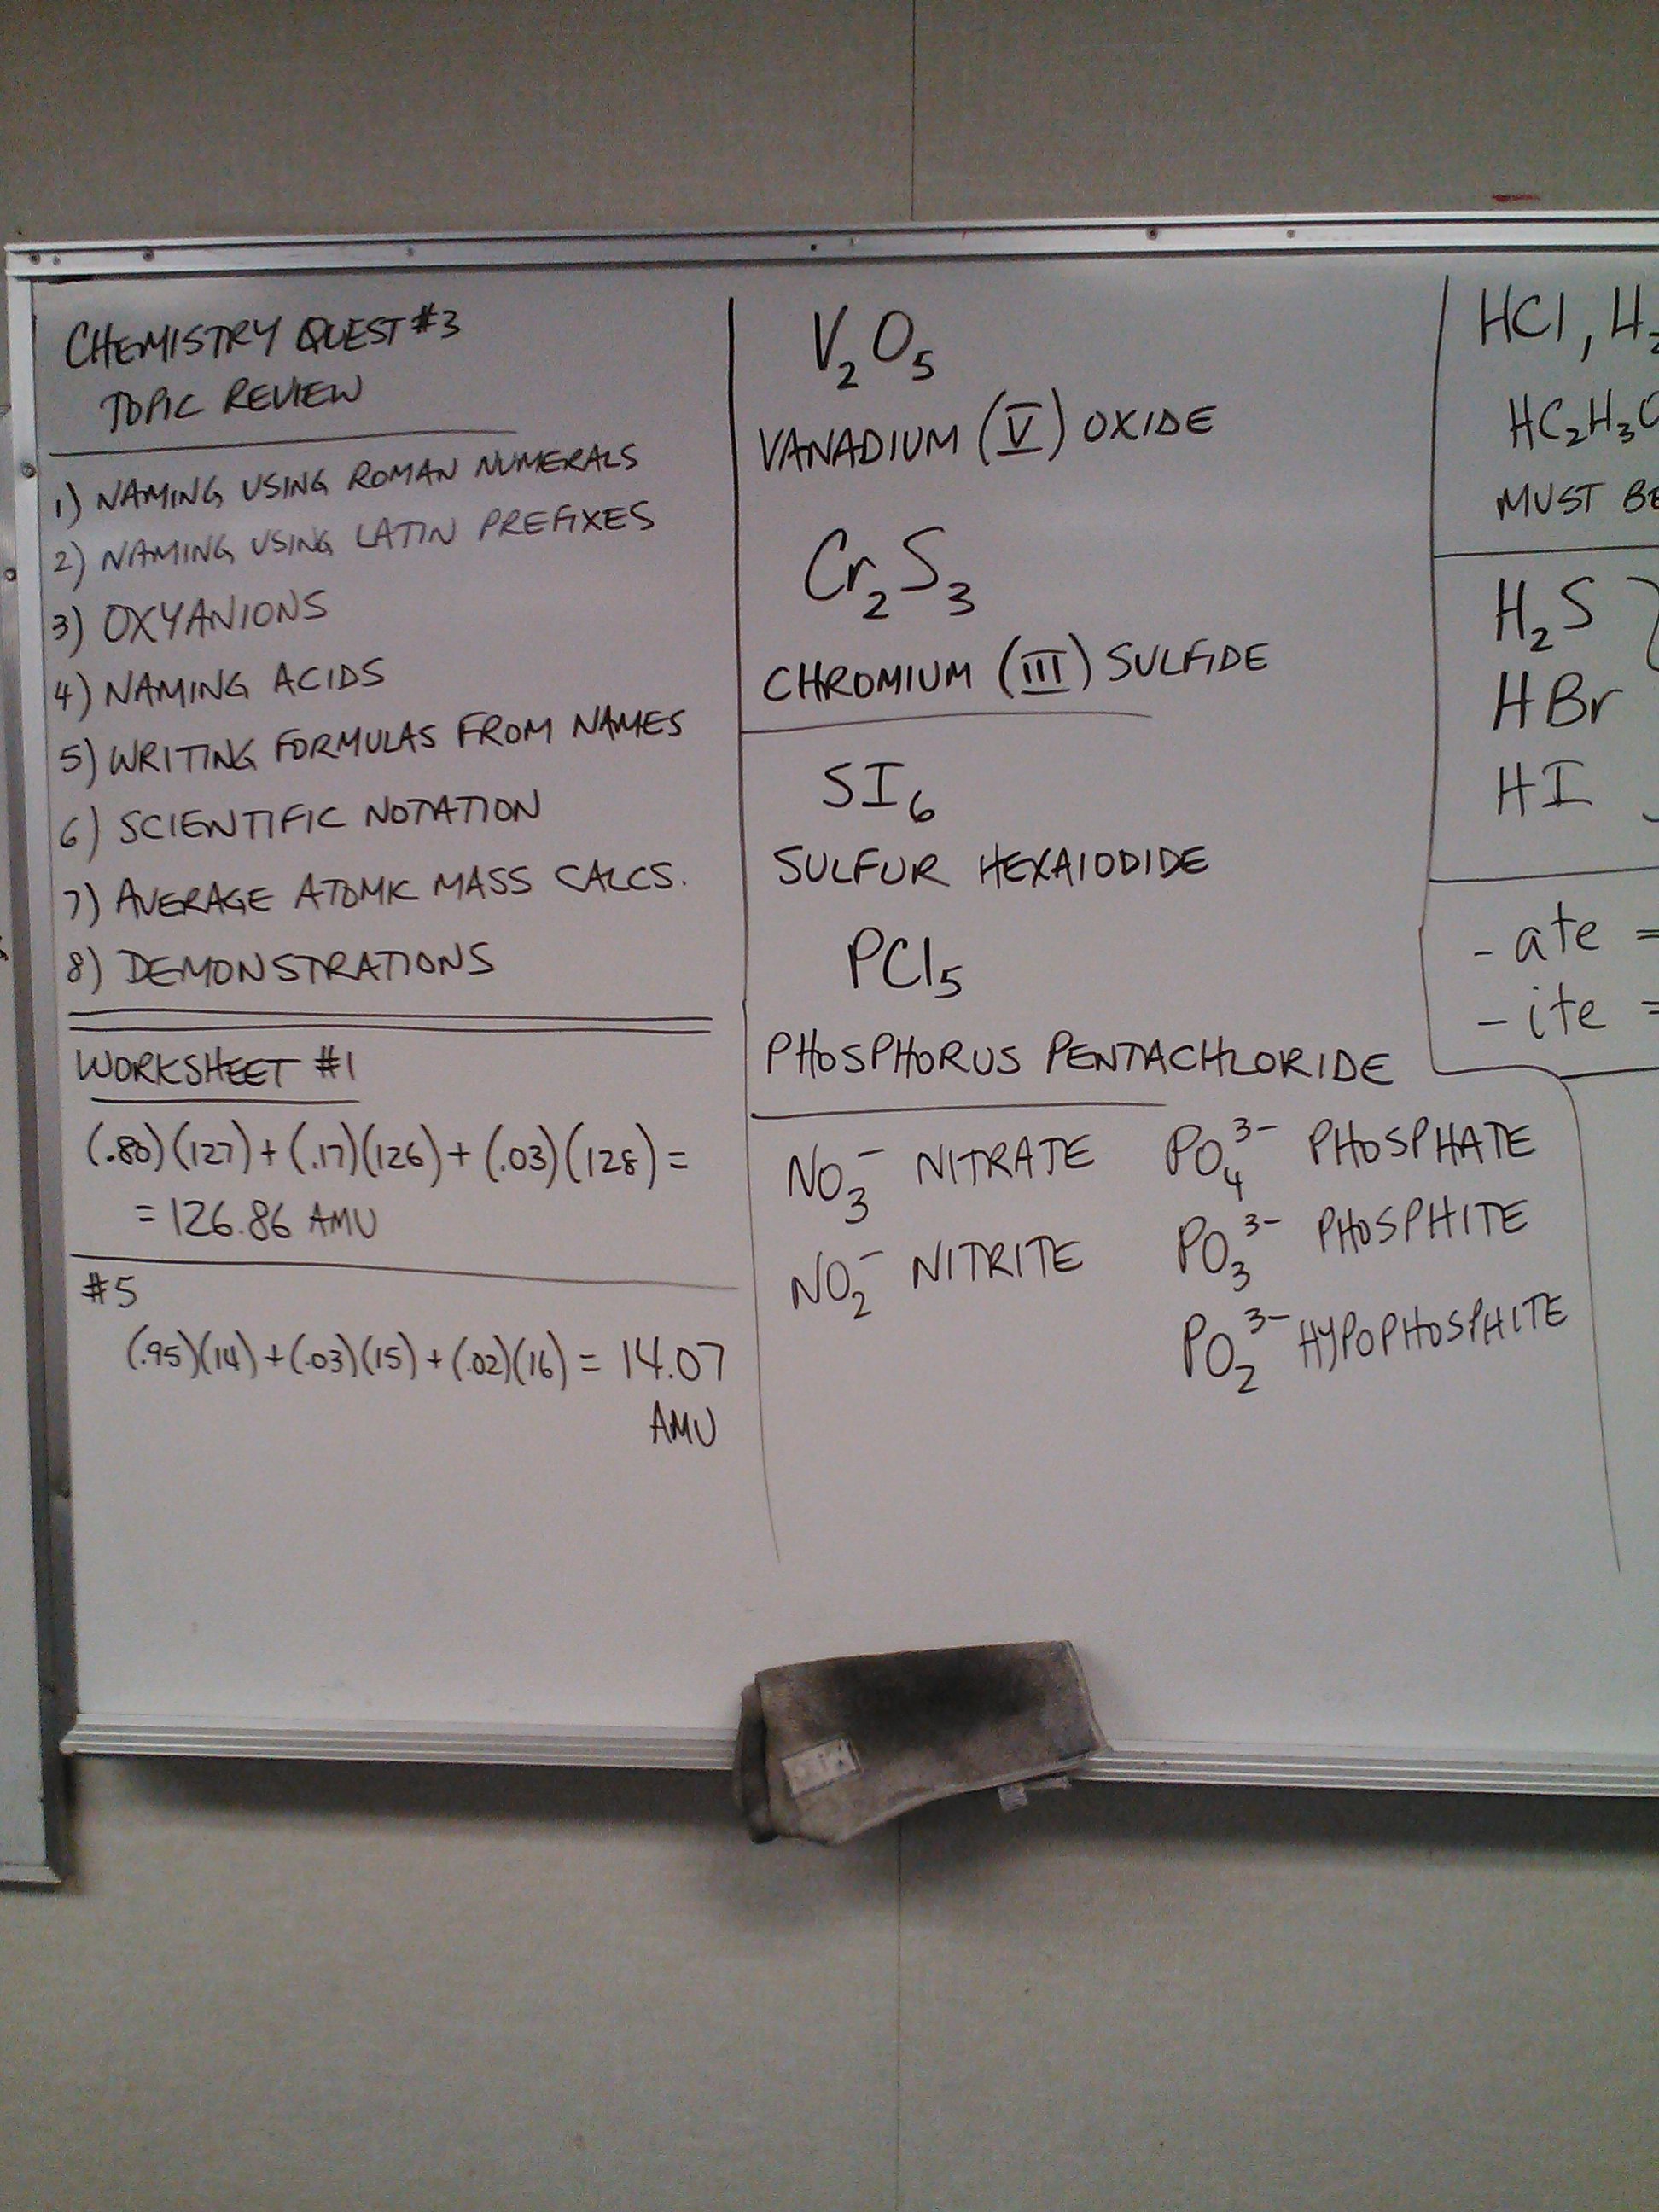 CHEMISTRY QUEST #3
TOPIC REVIEW
1) NAMING USING ROMAN NUMERALS
2) NAMING USING LATIN PREFIXES
3) OXYANIONS
4) NAMING ACIDS
5) WRITING FORMULAS FROM NAMES
6) SCIENTIFIC NOTATION
7) AVERAGE ATOMIC MASS CALCS.
8) DEMONSTRATIONS
WORKSHEET #1
(.80)(127) + (.17)(126) + (.03)(128) =
= 126.86 AMU
#5
(.95)(14) + (.03)(15) + (.02)(16) = 14.07
AMU
V₂O₅
VANADIUM (V) OXIDE
Cr₂S₃
CHROMIUM (III) SULFIDE
SI₆
SULFUR HEXAIODIDE
PCl₅
PHOSPHORUS PENTACHLORIDE
NO₃⁻ NITRATE
NO₂⁻ NITRITE
PO₄³⁻ PHOSPHATE
PO₃³⁻ PHOSPHITE
PO₂³⁻ HYPOPHOSPHITE
HCl, H₂
HC₂H₃O
MUST BE
H₂S
HBr
HI
-ate =
-ite =